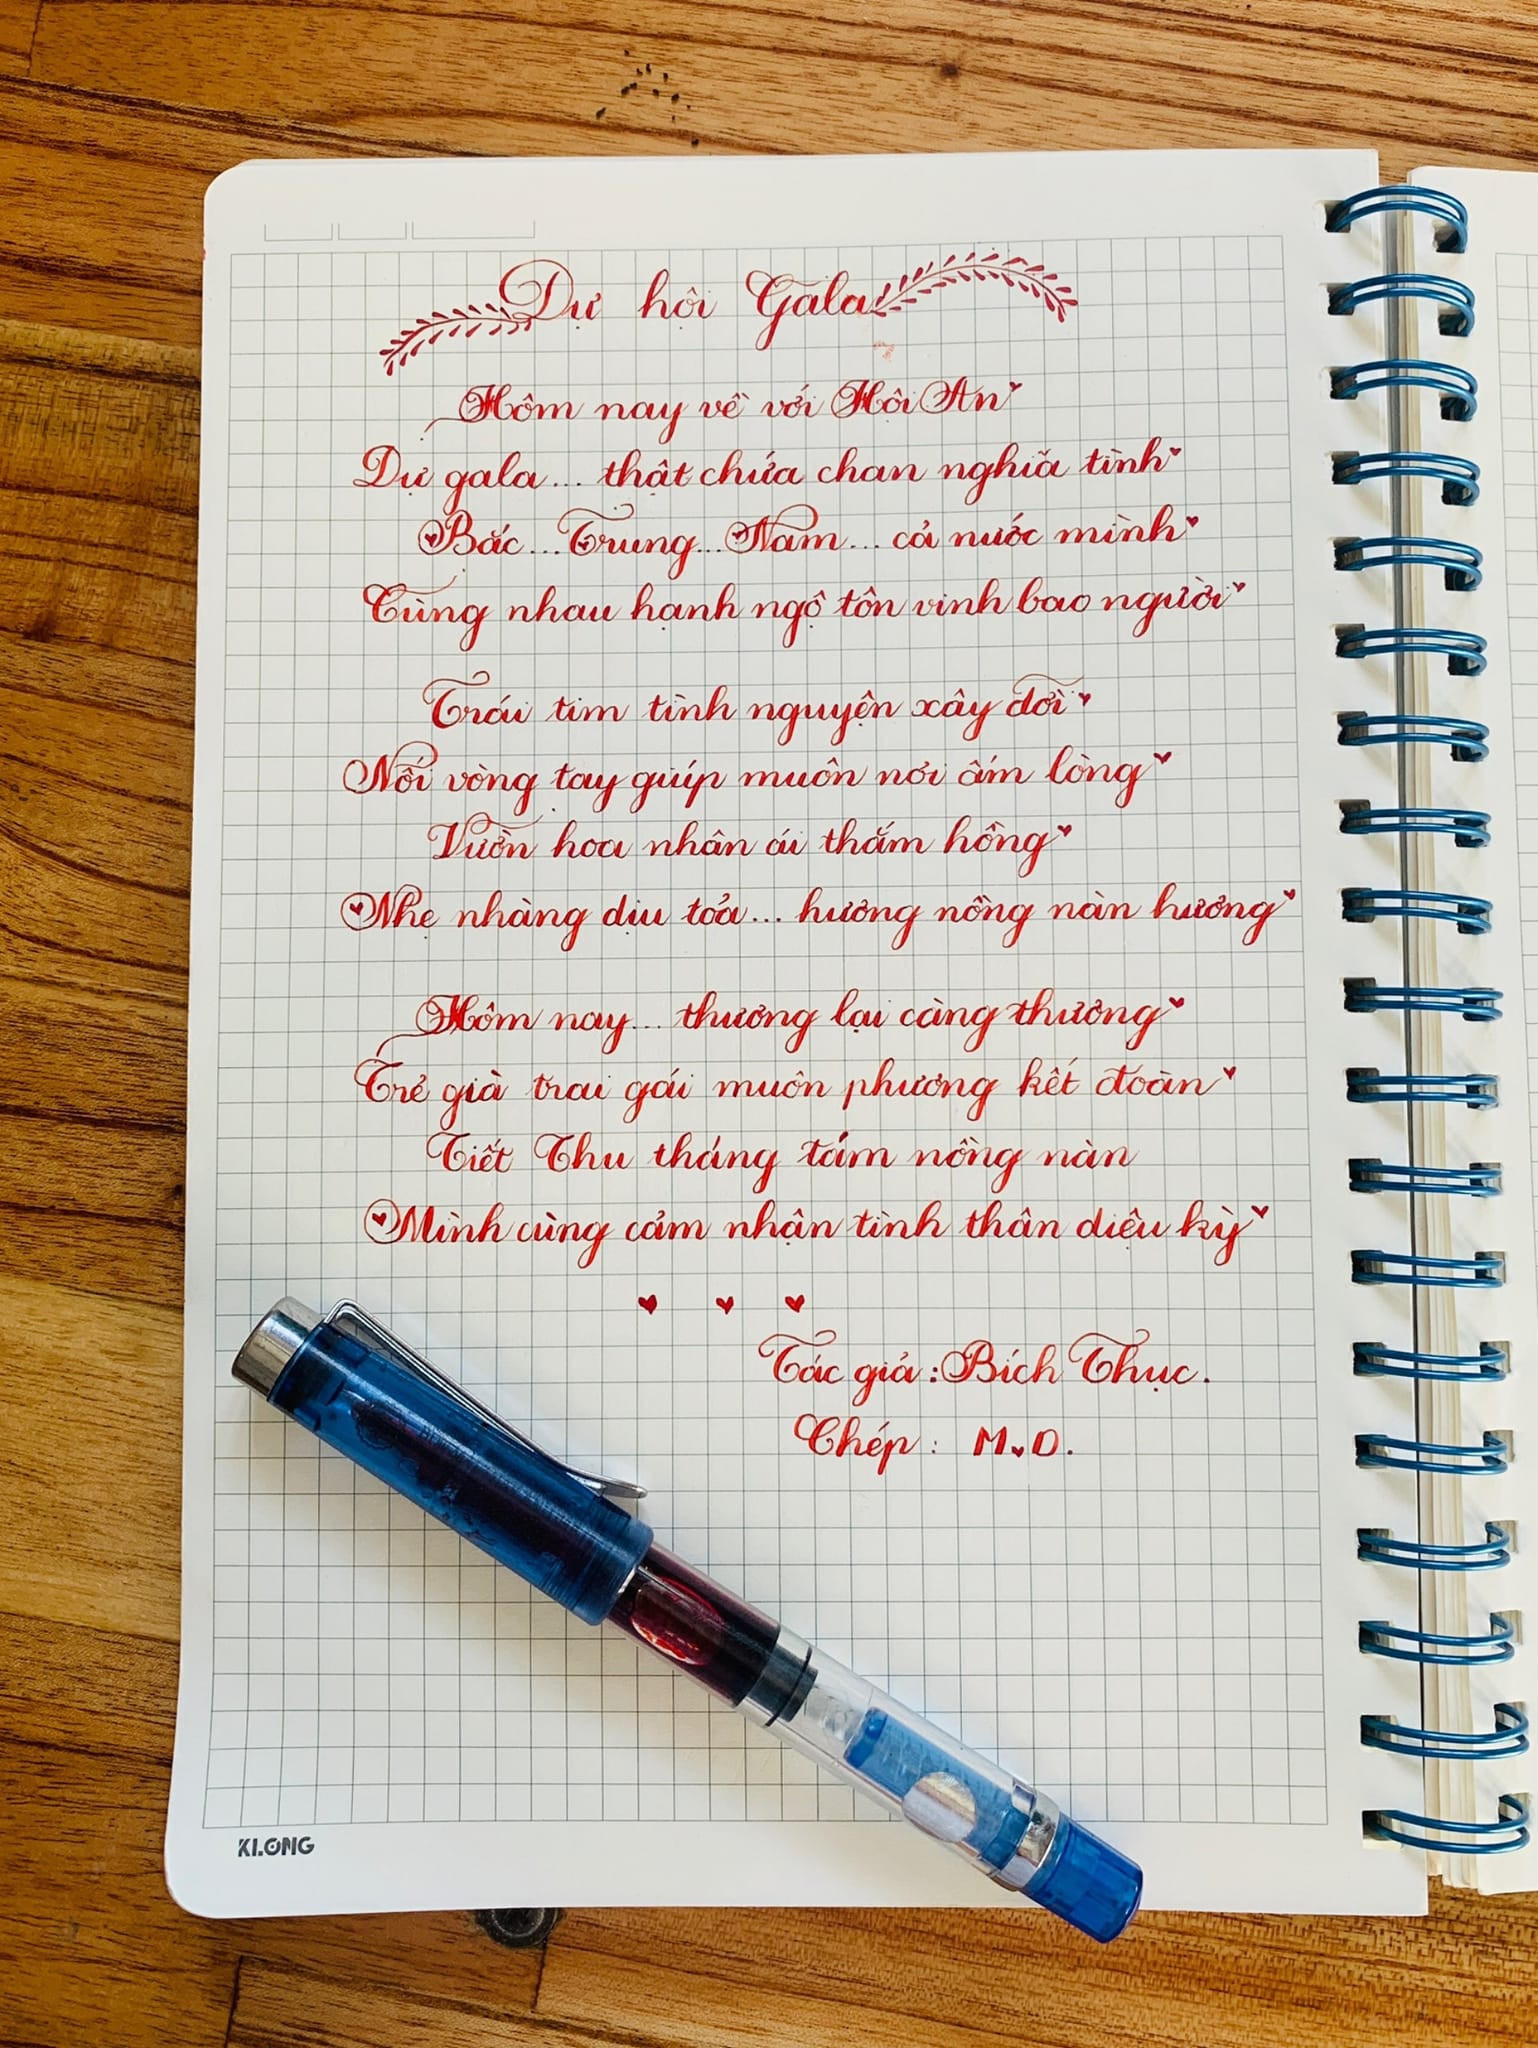 Dự hội Gala
Hôm nay về với Hội An
Dự gala... thật chứa chan nghĩa tình
Bắc... Trung... Nam... cả nước mình
Cùng nhau hạnh ngộ tôn vinh bao người
Trái tim tình nguyện xây đời
Nối vòng tay giúp muôn nơi ấm lòng
Vườn hoa nhân ái thắm hồng
Nhẹ nhàng dịu toả... hương nồng nàn hương
Hôm nay... thương lại càng thương
Trẻ già trai gái muôn phương kết đoàn
Tiết Thu tháng tám nồng nàn
Mình cùng cảm nhận tình thân diệu kỳ
Tác giả : Bích Thục.
Chép : M.D.
KLONG